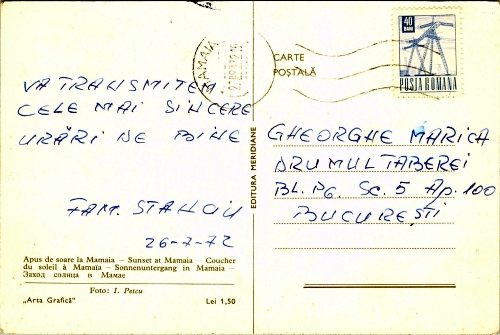 VA TRANSMITEM
CELE MAI SINCERE
URĂRI DE BINE
FAM. STANCIU
26-7-72
Apus de soare la Mamaia – Sunset at Mamaia – Coucher
du soleil à Mamaïa – Sonnenuntergang in Mamaia –
Заход солнца в Мамае
Foto: I. Petcu
„Arta Grafică”
Lei 1,50
EDITURA MERIDIANE
MAMAIA
CARTE
POȘTALĂ
40
BANI
POSTA ROMANA
GHEORGHE MARICA
DRUMUL TABEREI
BL. P6. SC. 5 Ap. 100
BUCUREȘTI